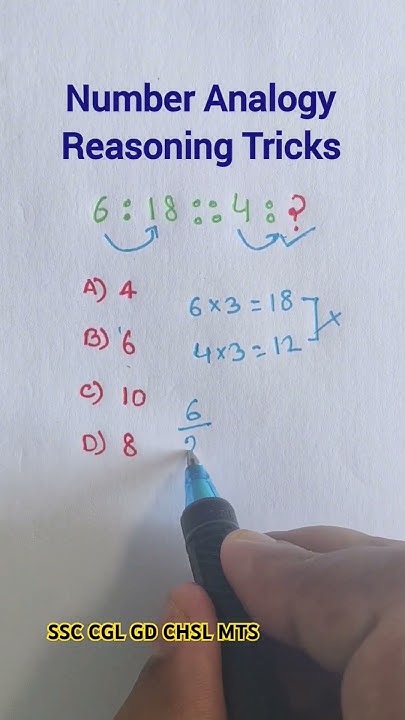 Number Analogy
Reasoning Tricks
6 : 18 :: 4 : ?
A) 4
B) 6
C) 10
D) 8
6 × 3 = 18
4 × 3 = 12
×
6
SSC CGL GD CHSL MTS